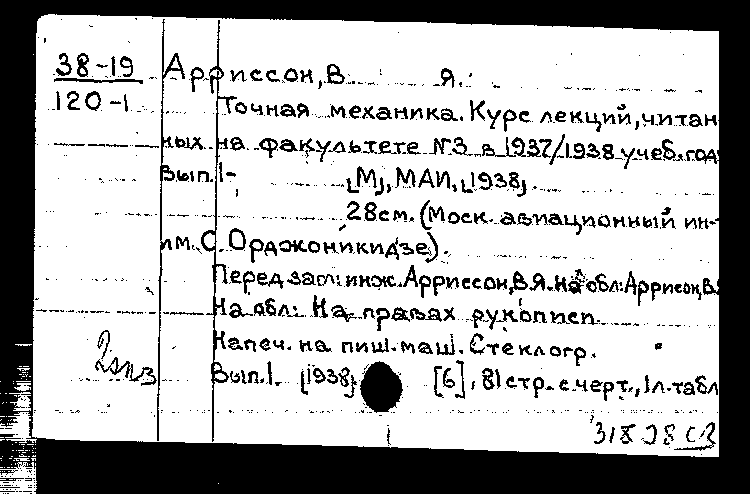 38-19 Арриссон, В Я.
120-1 Точная механика. Курс лекций, читан
ных на факультете №3 в 1937/1938 учеб. год
Вып. 1- [М], МАИ, [1938].
28см. (Моск. авиационный ин-
им. С. Орджоникидзе).
Перед заг: инж. Арриссон, В.Я. На обл: Аррисон, В.
На обл: На правах рукописи.
Напеч. на пиш. маш. Стеклогр.
Вып. 1. [1938] [6], 81 стр. с черт., 1л. табл
318